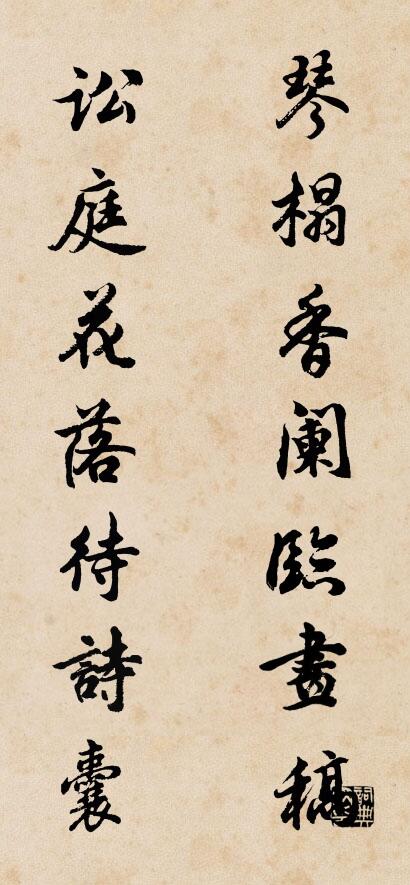 琴榻香阑臨畫稿
訟庭花落待詩囊